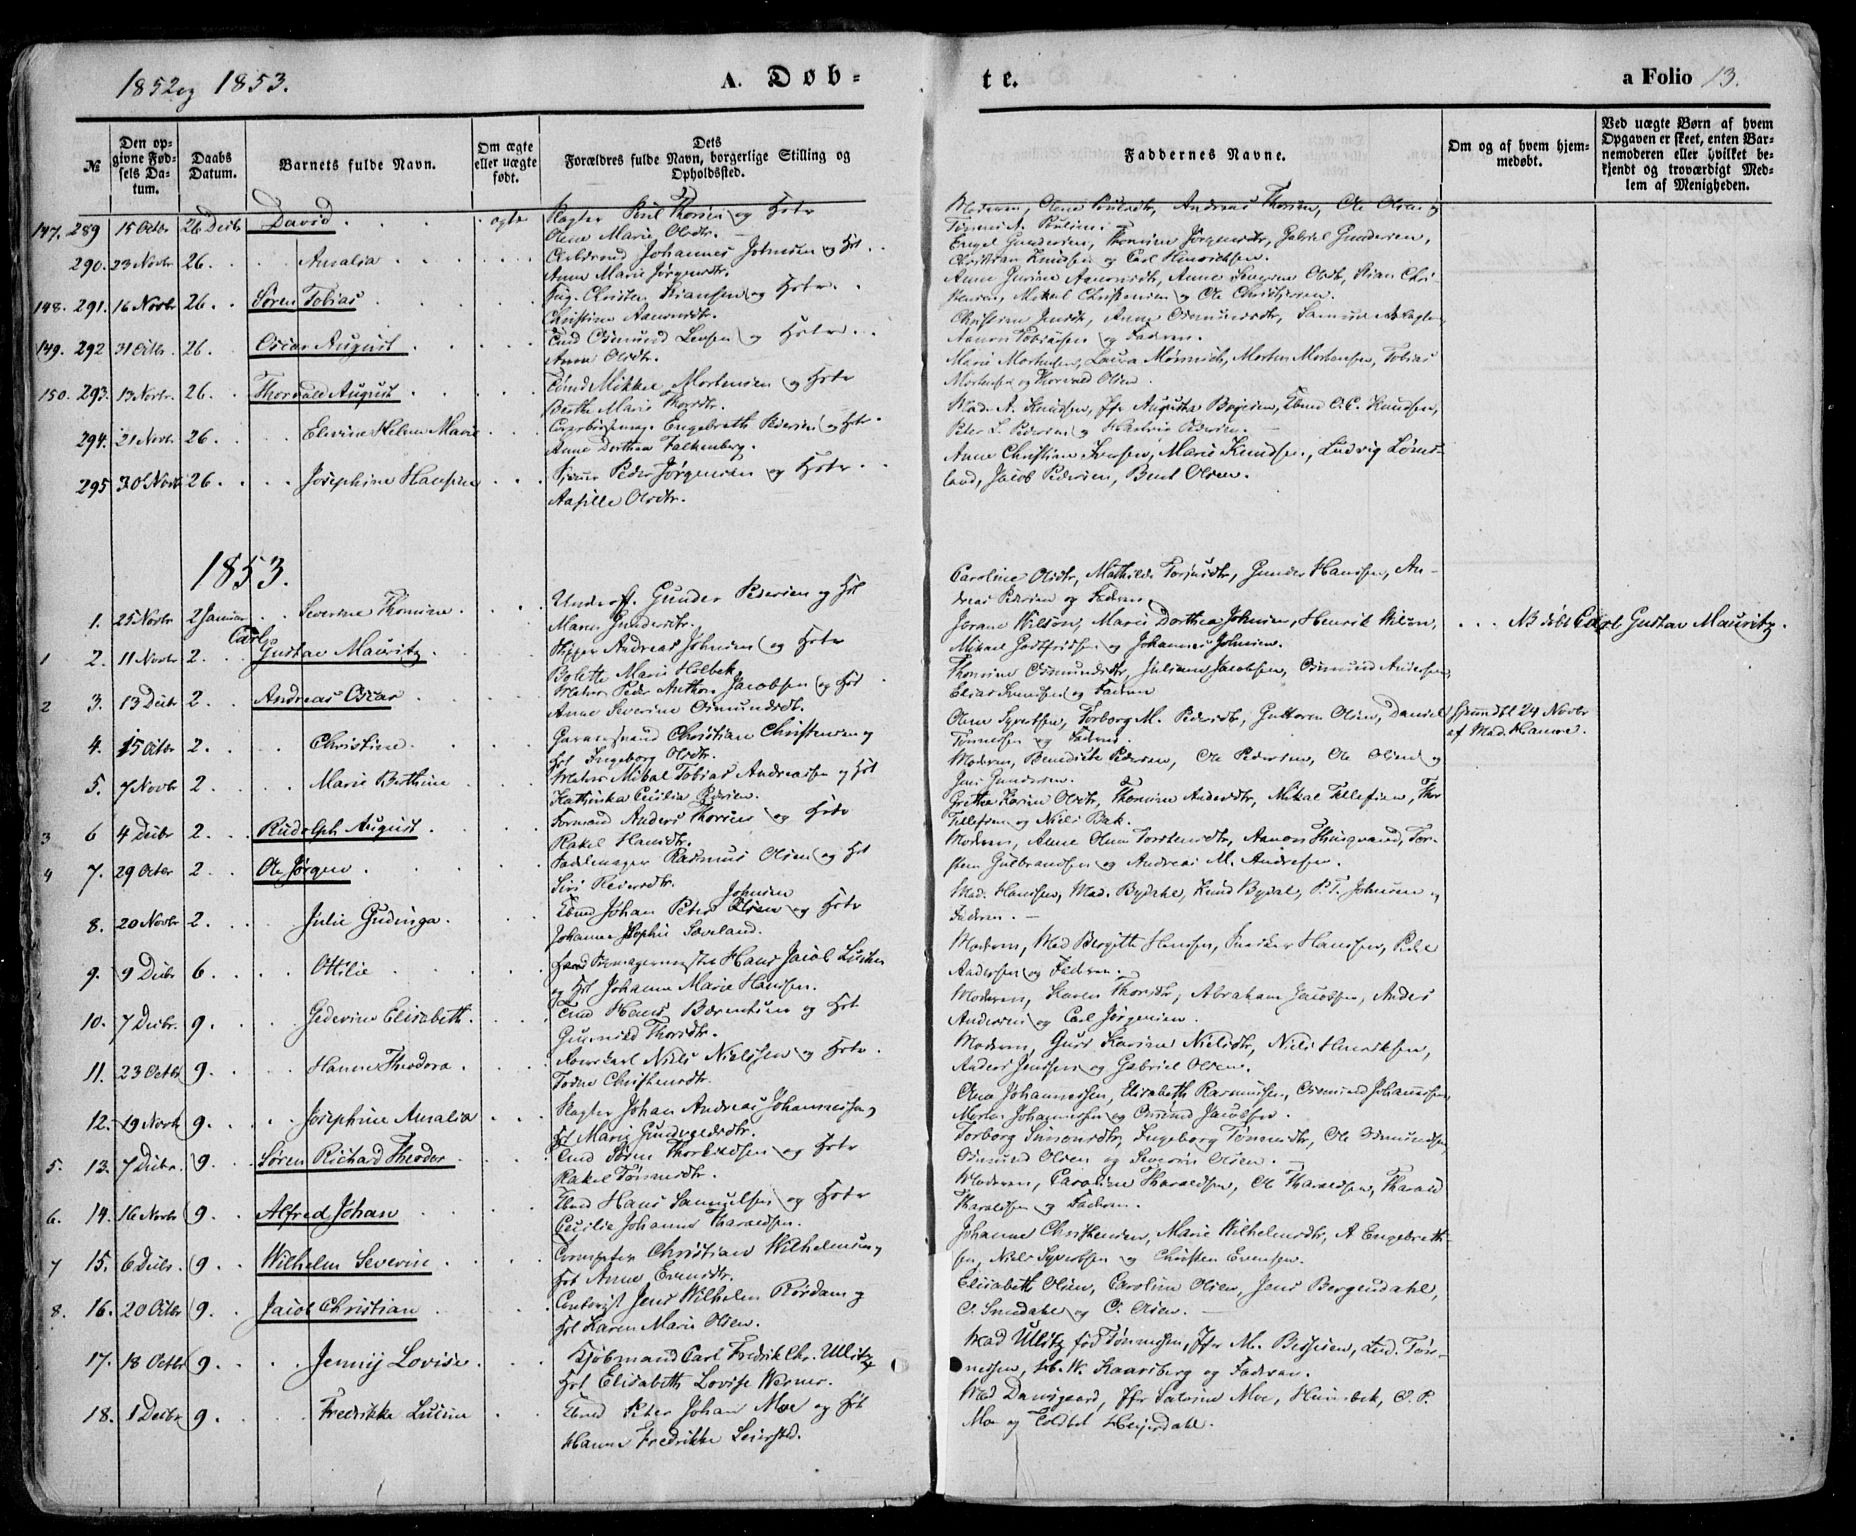 1852 og 1853.
A. Døb-
te.
a Folio 13.
№
Den op-
givne Fød-
sels Da-
tum.
Daabs
Datum.
Barnets fulde Navn.
Om ægte
eller uægte
født.
Dets
Forældres fulde Navn, borgerlige Stilling og
Opholdssted.
Faddernes Navne.
Om og af hvem hjem-
medøbt.
Ved uægte Børn af hvem
Opgaven er skeet, enten Bar-
nemoderen eller hvilket be-
kjendt og troværdigt Med-
lem af Menigheden.
147. 289 15 Octbr 26 Decbr David . . . . ægte Slagter Poul Thorsen og Hstr
Olene Marie Olsdtr.
Moderen, Olene Poulsdtr, Andreas Thorsen, Ole Olsen og
Tønnes Poulsen.
290. 23 Novbr 26. Amalia Johannes Johnsen og Hst
Anne Marie Jørgensdtr.
Engel Gundersen, Thomine Jørgensdtr, Gabriel Gundersen,
Christian Knudsen og Carl Henrichsen.
148. 291. 16 Novbr 26. Søren Tobias Christen Stiansen og Hstr
Christine Aanonsdtr.
Anne Gurine Aanonsdtr, Anne Severine Olsdtr, Stian Chri-
stensen, Mikael Christensen og Ole Christensen.
149. 292 31 Octbr. 26. Oscar August Osmund Larsen og Hstr
Anne Olsdtr.
Christine Jensdtr, Anne Osmundsdtr, Samuel
Aanon Tobiassen og Faderen.
150. 293. 13 Novbr. 26. Thorvald August Mikkel Mortensen og Hstr
Berthe Marie Thorsdtr.
Marie Mortensen, Laura Mørnick, Morten Mortensen, Tobias
Mortensen og Thorvald Olsen.
294. 21 Novbr 26. Elevine Helene Marie Engebreth Pedersen og Hstr
Anne Dorthea Falkenberg.
Mad. A. Knudsen, Jfr Augusta Boyesen, C. C. Knudsen,
Peter L. Pedersen og Pedersen.
295 30 Novbr 26. Josephine Hansine Peder Jørgensen og Hstr
Aasille Olsdtr.
Anne Christine Jensen, Marie Knudsen, Ludvig Løms-
land, Jacob Pedersen, Bent Olsen.
1853.
1. 25 Novbr 2 Januar Severine Thomine Underof. Gunder Pedersen og Hst
Maren Gundersdtr.
Caroline Olsdtr, Mathilde Torjusdtr, Gunder Hanssen, An-
dreas Pedersen og Faderen
1 2. 11 Novbr 2. Carl Gustav Mauritz Skipper Andreas Johnsen og Hstr
Bolette Marie Holbek
Jorane Wilson, Marie Dorthea Johnsen, Henrik Wilson,
Mikael Godtfridsen og Johannes Johnsen.
. . . NB døbt Carl Gustav Mauritz.
2 3. 13 Decbr 2. Andreas Oscar Peder Anthon Jacobsen og Hst
Anne Severine Osmundsdtr.
Thomine Osmundsdtr, Juliane Jacobsen, Osmund Andersen,
Elias Knudsen og Faderen
4. 15 Octbr 2. Christine Christian Christensen og
Hst Ingeborg Olsdtr.
Olene Syvertsen, Torborg M. Pedersdtr, Guttorm Olsen, Daniel
Tønnesen og Faderen.
24 Novbr
af Mad. Hanne.
5. 7 Novbr 2 Marie Berthine Tobias Andreassen og Hst
Kathinka Cecilia Pedersen.
Moderen, Benedicte Pedersen, Ole Pedersen, Ole Olsen og
Jens Gundersen.
3 6 4 Decbr 2. Rudolph August Formand Anders Thorsen og Hstr
Rakel Hansdtr.
Grethe Karine Olsdtr, Thomine Andersdtr, Mikal Tellefsen, Thor
Tellefsen og Niels Bak.
4 7. 29 Octbr 2 Ole Jørgen Sadelmager Rasmus Olsen og Hst
Siri Reiersdtr.
Moderen, Anne Olene Torstensdtr, Aanon Thingvand, Tor-
sten Gulbrandsen og Andreas M. Andresen.
8. 20 Novbr 2. Julie Gudinga. Johan Peter Johnsen og Hstr
Johanne Sophie Sæveland.
Mad. Hanssen, Mad. Bydahl, Knud Bydal, P. T. Johnsen og
Faderen.
9. 9 Decbr 6. Ottilie Hans Jacob
og Hst Johanne Marie Hanssen.
Moderen, Mad Bergitte Hanssen, Hanssen, Peder
Anderssen og Faderen.
10. 7 Decbr. 9. Gedevine Elisabeth Hans Berentsen og Hst
Gunnild Thorsdtr.
Moderen, Karen Thorsdtr, Abraham Jacobsen, Anders
Andersen og Carl Jørgensen.
11. 23 Octbr 9. Hanne Theodora Niels Nielssen og Hstr
Torine Christensdtr.
Moderen, Guri Karine Nielsdtr, Niels Henriksen,
Anders Jenssen og Gabriel Olsen.
12. 19 Novbr 9. Josephine Amalia Slagter Johan Andreas Johannessen og
Hst Marie Gundvaldsdtr.
Ona Johannessen, Elisabeth Rasmussen, Osmund Johannessen,
Morten Johannessen og Osmund Jacobsen.
5. 13. 7 Decbr. 9. Søren Richard Theodor Søren Thorkildsen og Hstr
Rakel Tønnesdtr.
Torborg Simonsdtr, Ingeborg Tønnesdtr, Ole Osmundsen
Osmund Olsen og Severin Olsen.
6. 14. 16 Novbr 9. Alfred Johan Hans Samuelsen og Hstr
Cecilie Johanne Tharaldsen.
Moderen, Caroline Tharaldsen, Ole Tharaldsen, Tharald
Tharaldsen og Faderen.
7 15. 6 Decbr. 9. Wilhelm Severin Christian Wilhelmsen og
Hst Anne Evensdtr.
Johanne Christensen, Marie Wilhelmsdtr, A Engebreth-
sen, Niels Syvertsen og Christen Evensen.
8. 16. 20 Octbr 9. Jacob Christian Contorist Jens Wilhelm Rørdam og
Hst Karen Marie Olsen.
Elisabeth Olsen, Caroline Olsen, Jens Bergendahl,
C. Smedahl og C. Olsen.
17. 18 Octbr 9. Jenny Lovise Kjøbmand Carl Fredrik Chr. Ullitz
Hst Elisabeth Lovise Werner.
Mad Ullitz fød Tønnessen, Jfr M. Bessesen, Lud. Tøn-
nessen, W. Kaarsberg og Faderen.
18. 1 Decbr 9. Fredrikke Peter Johan Moe og Hst
Hanne Fredrikke Seiersted.
Mad Dansgaard, Jfr Moe, Heimbek, C. P.
Moe og Heyerdahl.